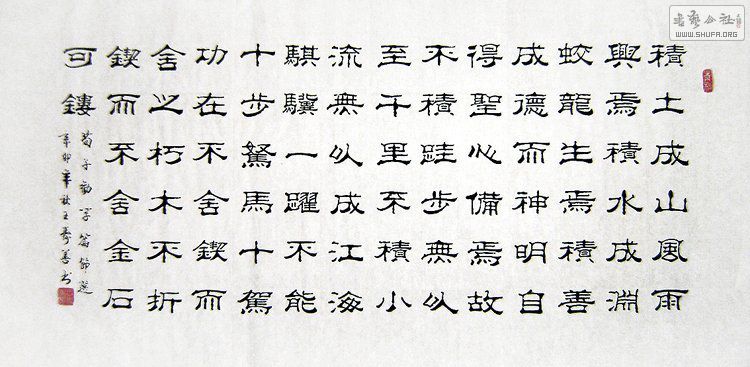 積土成山風雨
興焉積水成淵
蛟龍生焉積善
成德而神明自
得聖心備焉故
不積跬步無以
至千里不積小
流無以成江海
騏驥一躍不能
十步駑馬十駕
功在不舍鍥而
舍之朽木不折
鍥而不舍金石
可鏤
荀子勸学篇節選
辛卯年秋王壽善书
WWW.SHUFA.ORG